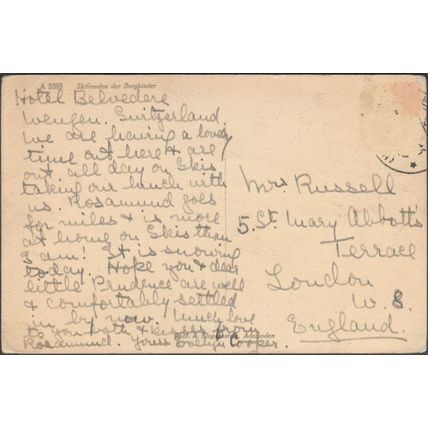 A 5395 Skifreuden der Bergkinder
Hotel Belvedere
Wengen. Switzerland
We are having a lovely
time out here & are
out all day on Skis
taking our lunch with
us. Rosamund goes
for miles & is more
at home on Skis than
I am! It is snowing
today. Hope you & dear
little Prudence are well
& comfortably settled
in by now. Much love
to you both & kisses from
Rosamund. Yours Evelyn Cooper.
Phot. A. Adelboden
Mrs Russell
5. St. Mary Abbott's
Terrace
London
W. 8.
England.